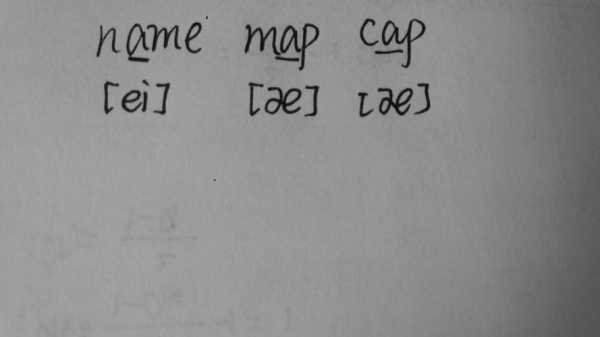 name map cap
[ei] [æ] [æ]